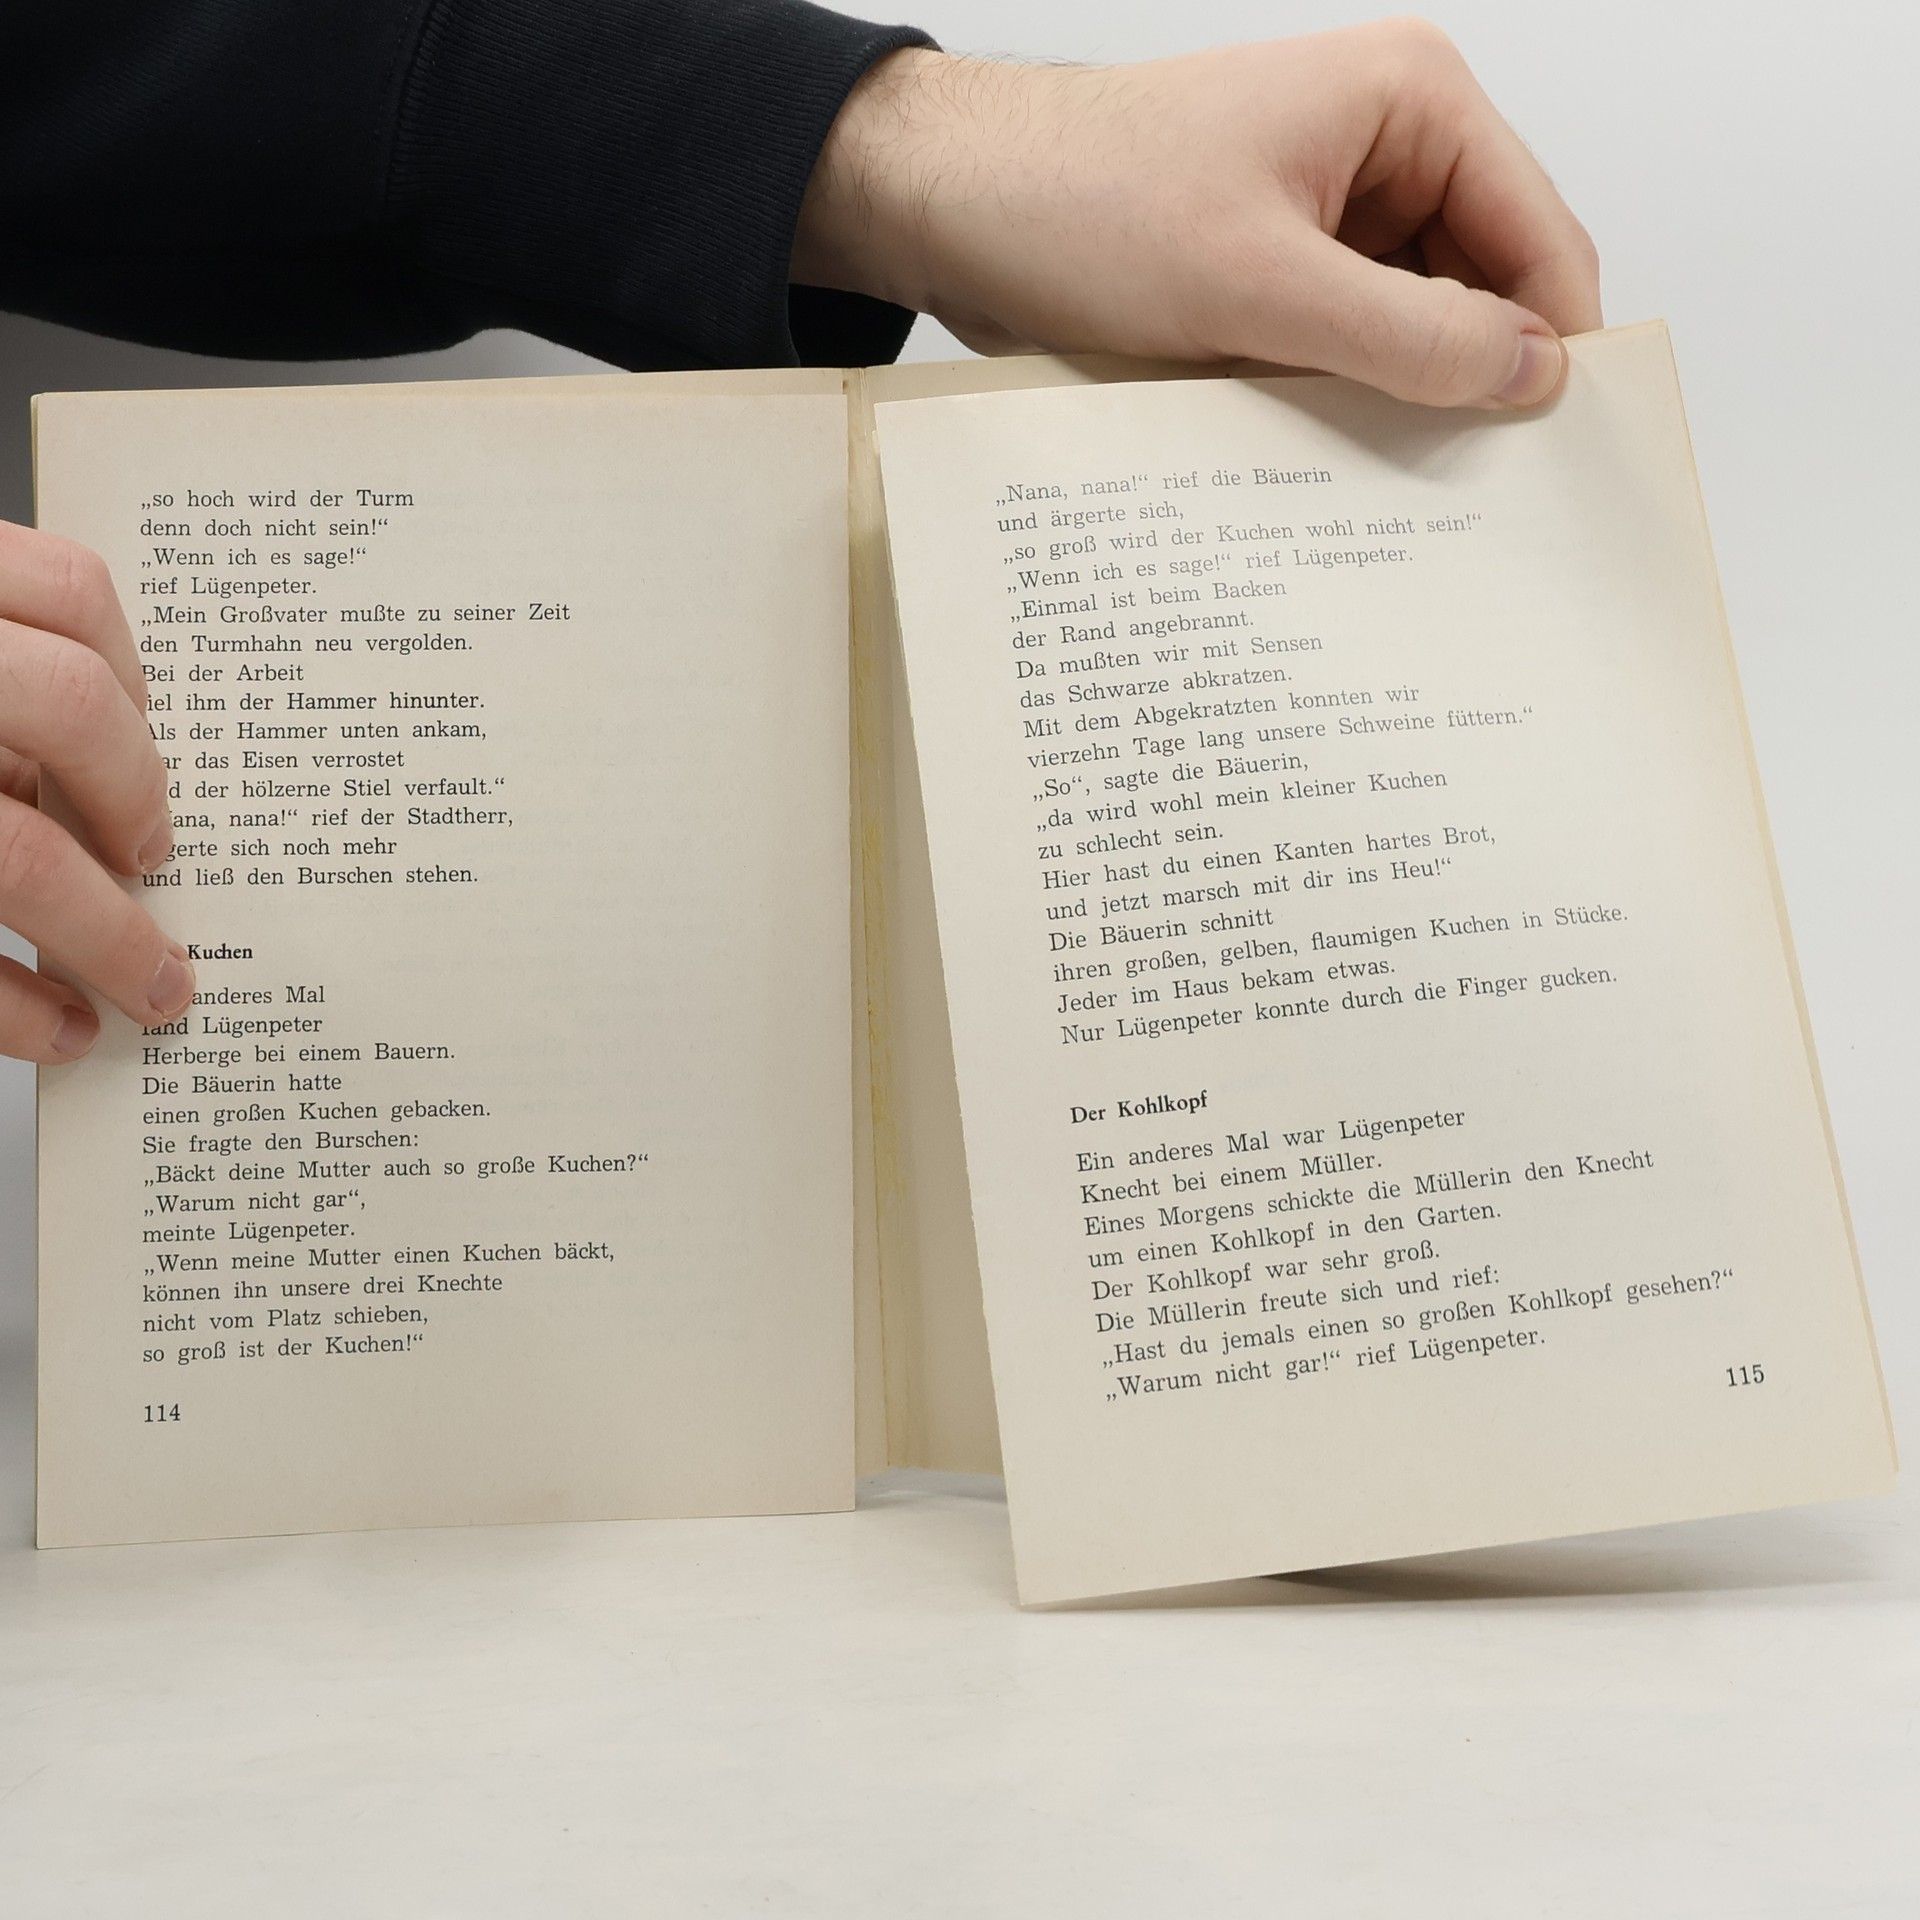 „so hoch wird der Turm
denn doch nicht sein!“
„Wenn ich es sage!“
rief Lügenpeter.
„Mein Großvater mußte zu seiner Zeit
den Turmhahn neu vergolden.
Bei der Arbeit
ihm der Hammer hinunter.
Als der Hammer unten ankam,
das Eisen verrostet
der hölzerne Stiel verfault.“
nana!“ rief der Stadtherr,
sich noch mehr
und ließ den Burschen stehen.
Kuchen
anderes Mal
fand Lügenpeter
Herberge bei einem Bauern.
Die Bäuerin hatte
einen großen Kuchen gebacken.
Sie fragte den Burschen:
„Bäckt deine Mutter auch so große Kuchen?“
„Warum nicht gar“,
meinte Lügenpeter.
„Wenn meine Mutter einen Kuchen bäckt,
können ihn unsere drei Knechte
nicht vom Platz schieben,
so groß ist der Kuchen!“
114
„Nana, nana!“ rief die Bäuerin
und ärgerte sich,
„so groß wird der Kuchen wohl nicht sein!“
„Wenn ich es sage!“ rief Lügenpeter.
„Einmal ist beim Backen
der Rand angebrannt.
Da mußten wir mit Sensen
das Schwarze abkratzen.
Mit dem Abgekratzten konnten wir
vierzehn Tage lang unsere Schweine füttern.“
„So“, sagte die Bäuerin,
„da wird wohl mein kleiner Kuchen
zu schlecht sein.
Hier hast du einen Kanten hartes Brot,
und jetzt marsch mit dir ins Heu!“
Die Bäuerin schnitt
ihren großen, gelben, flaumigen Kuchen in Stücke.
Jeder im Haus bekam etwas.
Nur Lügenpeter konnte durch die Finger gucken.
Der Kohlkopf
Ein anderes Mal war Lügenpeter
Knecht bei einem Müller.
Eines Morgens schickte die Müllerin den Knecht
um einen Kohlkopf in den Garten.
Der Kohlkopf war sehr groß.
Die Müllerin freute sich und rief:
„Hast du jemals einen so großen Kohlkopf gesehen?“
„Warum nicht gar!“ rief Lügenpeter.
115